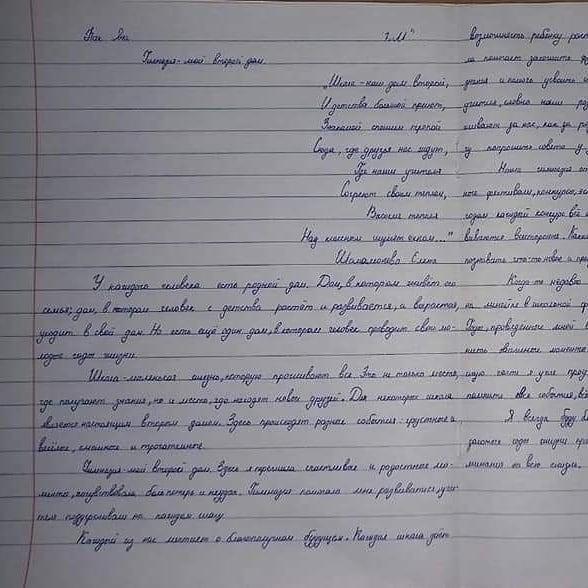 7 "М"
Гимназия - мой второй дом.
„Школа - наш дом второй,
И детства большой приют,
Знакомой спешим тропой
Сюда, где друзья нас ждут,
Где наши учителя
Согреют своим теплом,
Высокие тополя
Над классным шумят окном..."
У каждого человека есть родной дом. Дом, в котором живёт его
семья; дом, в котором человек с детства растёт и развивается, а вырастая,
уходит в свой дом. Но есть ещё один дом, в котором человек проводит свои мо-
лодые годы жизни.
Школа - маленькая жизнь, которую проживают все. Это не только место,
где получают знания, но и место, где находят новых друзей. Для некоторых школа
является настоящим вторым домом. Здесь происходят разные события: грустные и
весёлые, смешные и трогательные.
Гимназия - мой второй дом. Здесь я прожила счастливые и радостные мо-
менты, почувствовала боль потерь и неудач. Гимназия помогала мне развиваться, учи-
теля поддерживали на каждом шагу.
Каждый из нас мечтает о благополучном будущем. Каждая школа даёт
возможность ребёнку
знания и помогло усвоить
учителя, словно наши
живают за нас, как за
попросить совета у
Наша гимназия
ные фестивали, конкурсы,
годом каждый конкурс всё
познавать что-то новое и
Когда-то недавно
на линейке в школьной
Я всегда буду
школьные годы жизни
минания на всю жизнь.